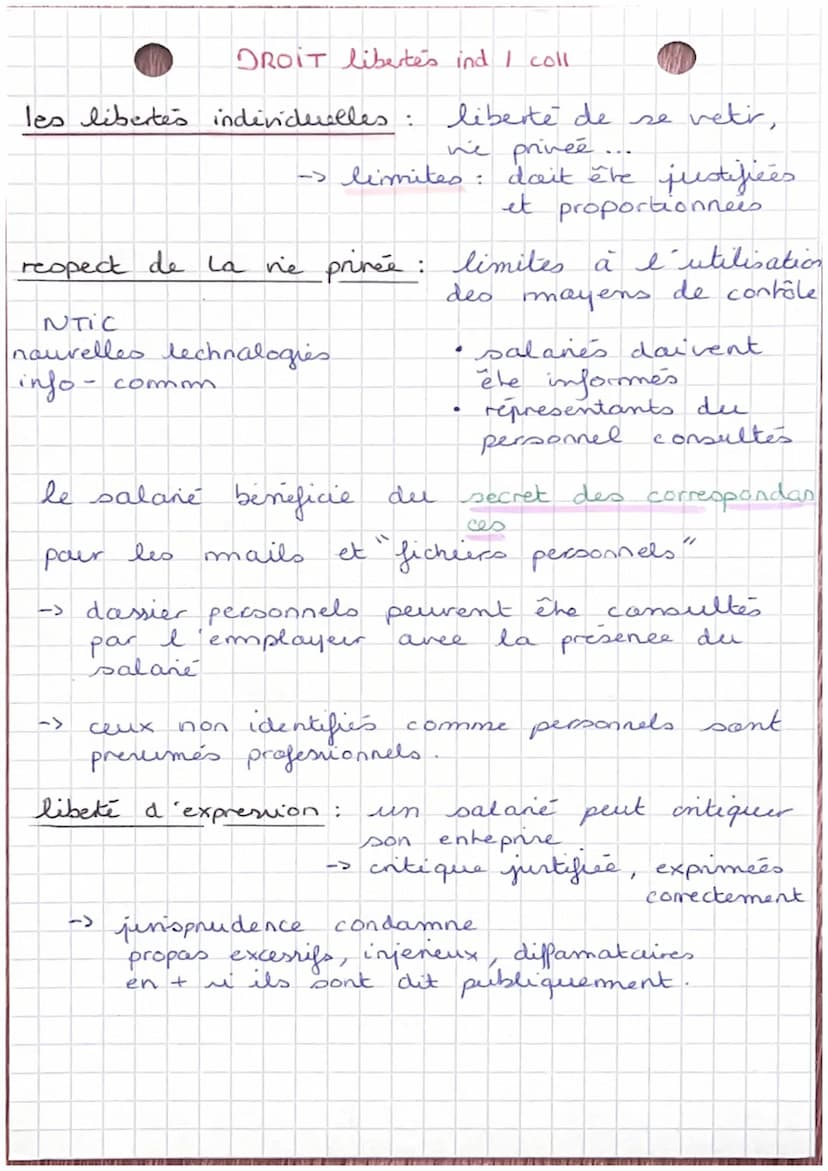 DROIT libertés ind / coll
les libertés individuelles : liberté de se vetir,
vie privée ...
-> limites : doit être justifiées
et proportionnées
respect de la vie privée : limites à l'utilisation
des moyens de contrôle
NTIC
nouvelles technologies
info - comm
• salariés doivent
être informés
• représentants du
personnel consultés
le salarié bénéficie du secret des correspondan
ces
pour les mails et "fichiers personnels"
-> dossier personnels peuvent être consultés
par l'employeur avec la présence du
salarié
-> ceux non identifiés comme personnels sont
presumés professionnels.
liberté d'expression : un salarié peut critiquer
son entreprise
-> critique justifiée, exprimées
correctement
-> jurisprudence condamne
propos excessifs, injerieux, diffamatoires
en + si ils sont dit publiquement.